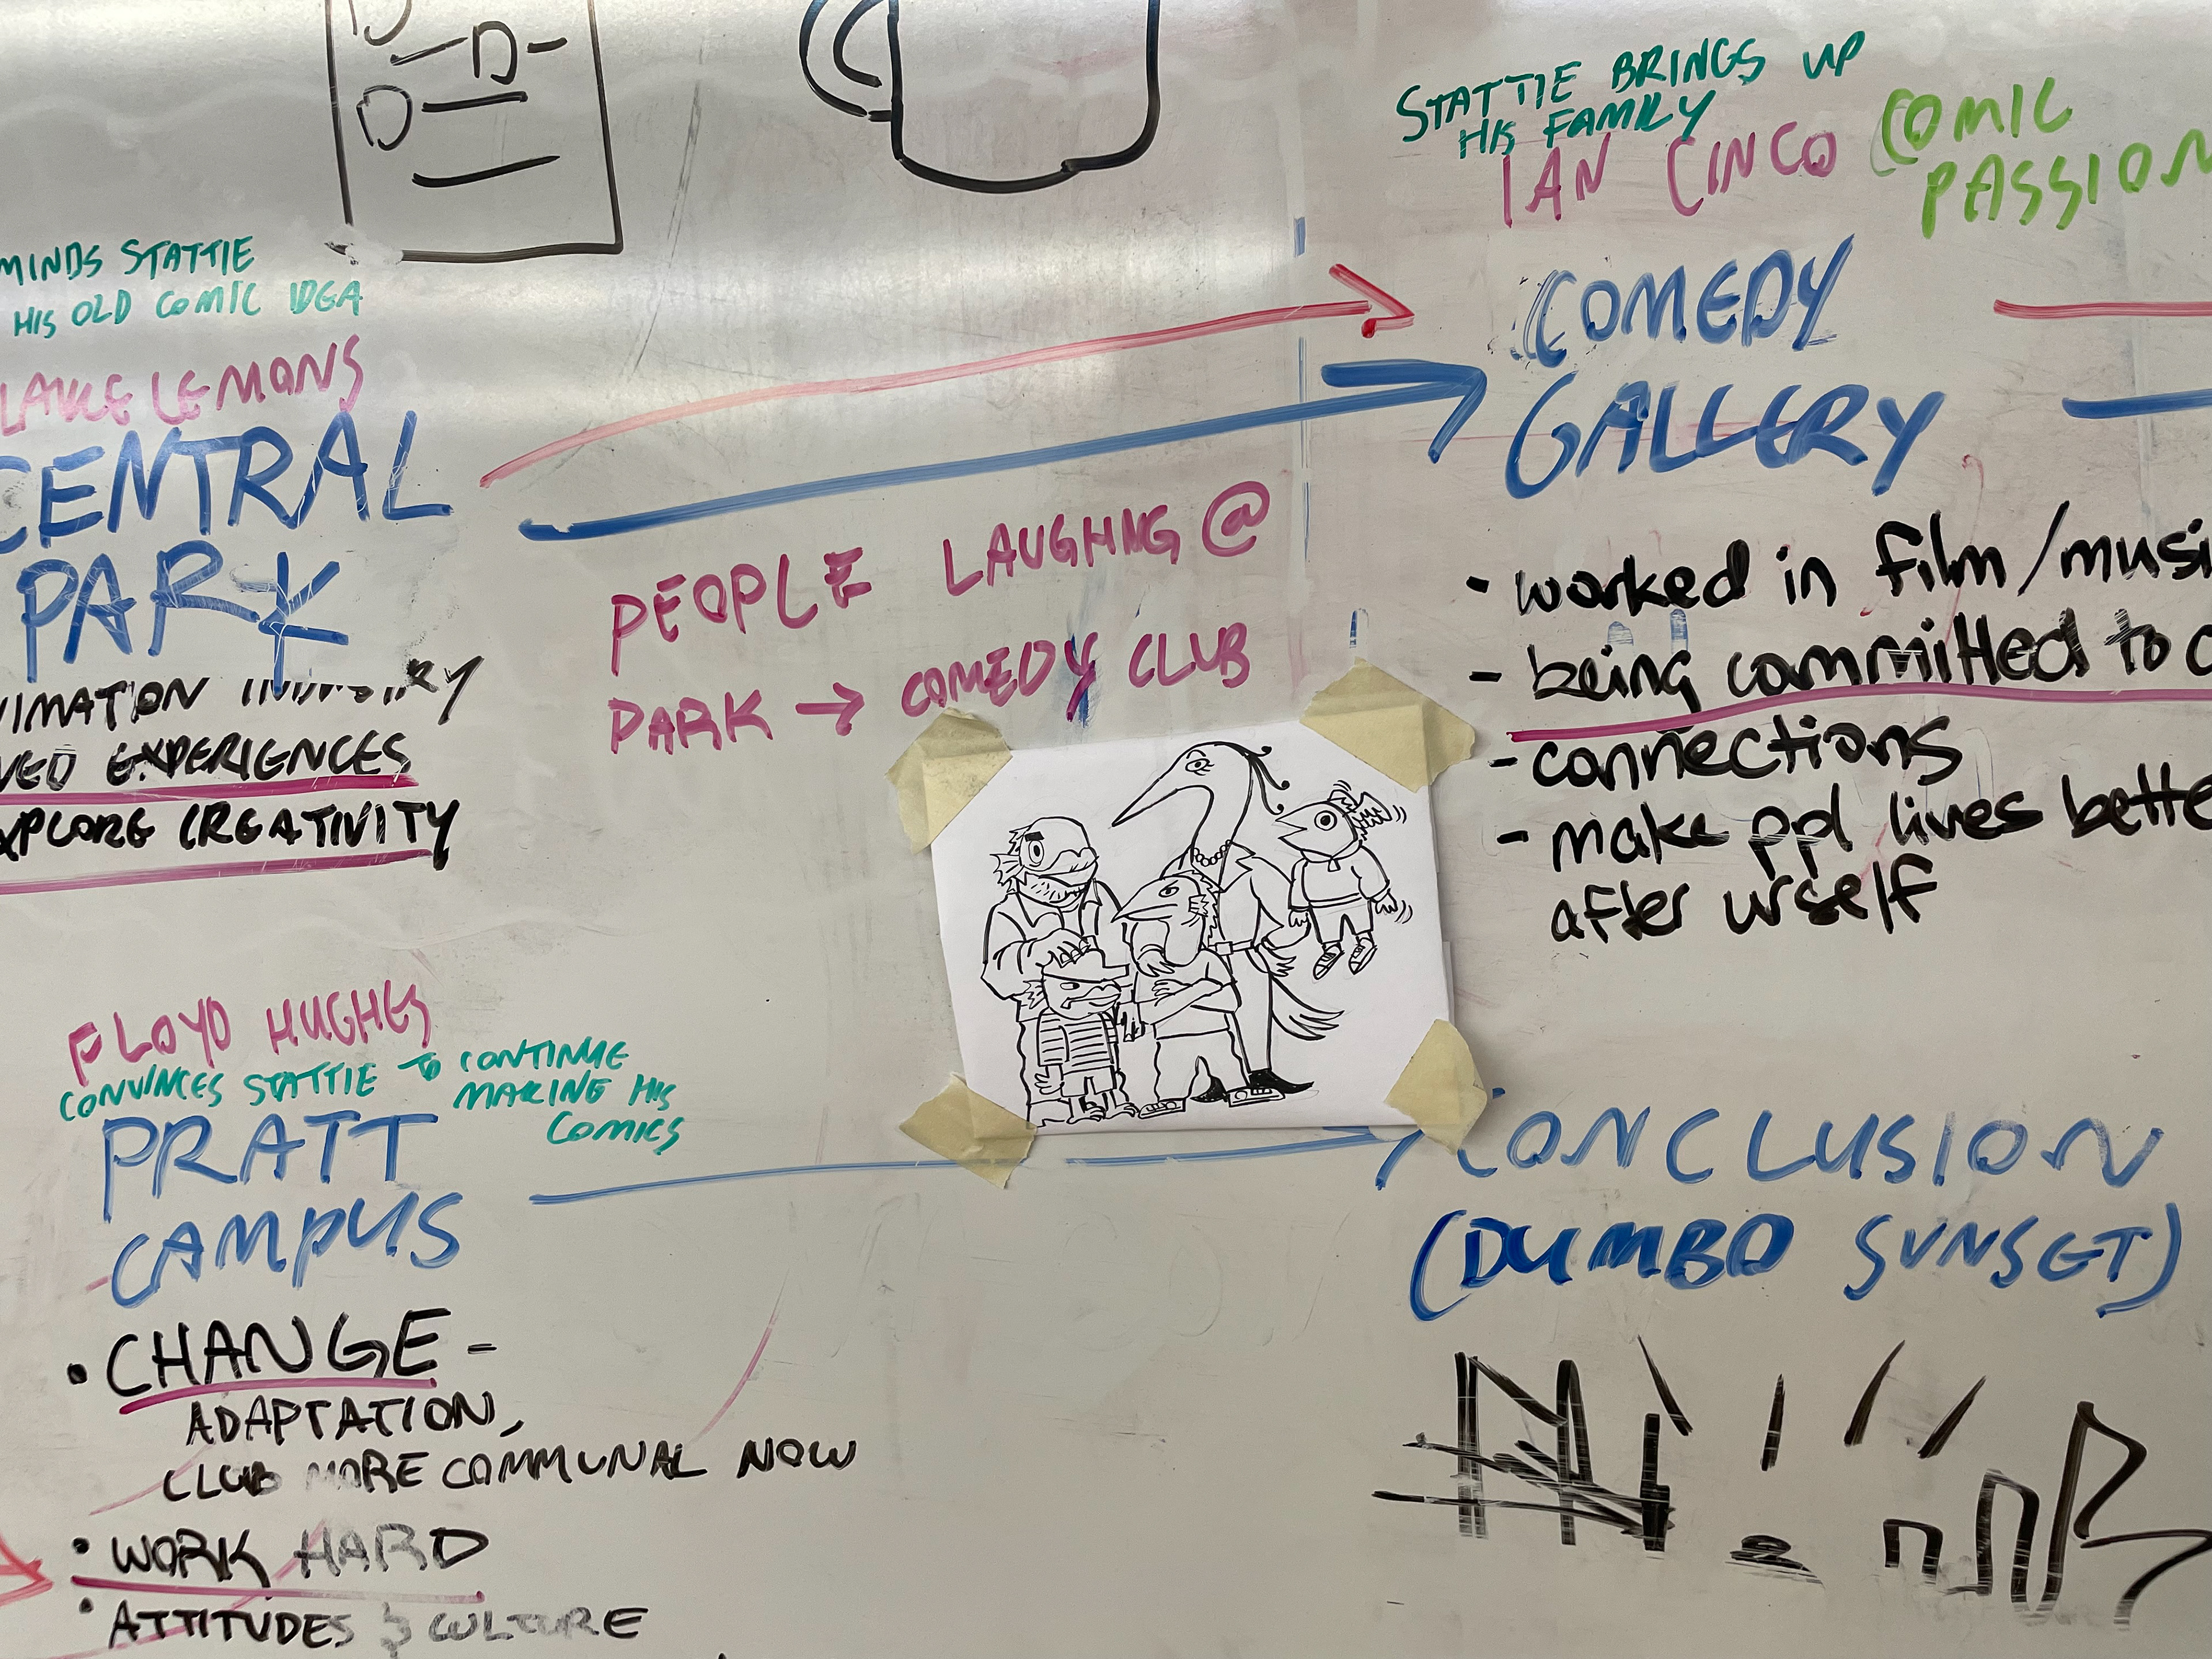 D-
D
STATTIE BRINGS UP
HIS FAMILY
IAN CINCO
COMIC
PASSION
MINDS STATTIE
HIS OLD COMIC IDEA
LAKE LEMONS
CENTRAL
PARK
IMATION INDUSTRY
VED EXPERIENCES
XPLORE CREATIVITY
PEOPLE LAUGHING @
PARK → COMEDY CLUB
COMEDY
GALLERY
• worked in film/musi
- being committed to c
- connections
- make ppl lives bette
after urself
FLOYD HUGHES
CONVINCES STATTIE TO CONTINUE
MAKING HIS
COMICS
PRATT
CAMPUS
• CHANGE -
ADAPTATION,
CLUB MORE COMMUNAL NOW
• WORK HARD
• ATTITUDES & CULTURE
CONCLUSION
(DUMBO SUNSET)